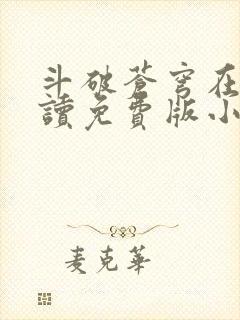 斗破蒼穹在
讀免費版小
麦克華